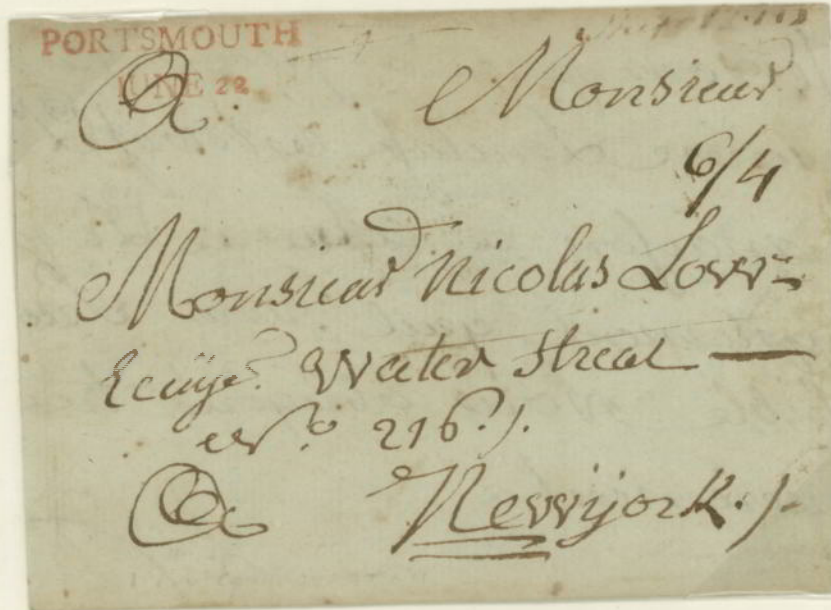 PORTSMOUTH
JUNE 22
A Monsieur
6/4
Monsieur Nicolas Low=
Water Streat —
N.º 216./.
A Newyork./.